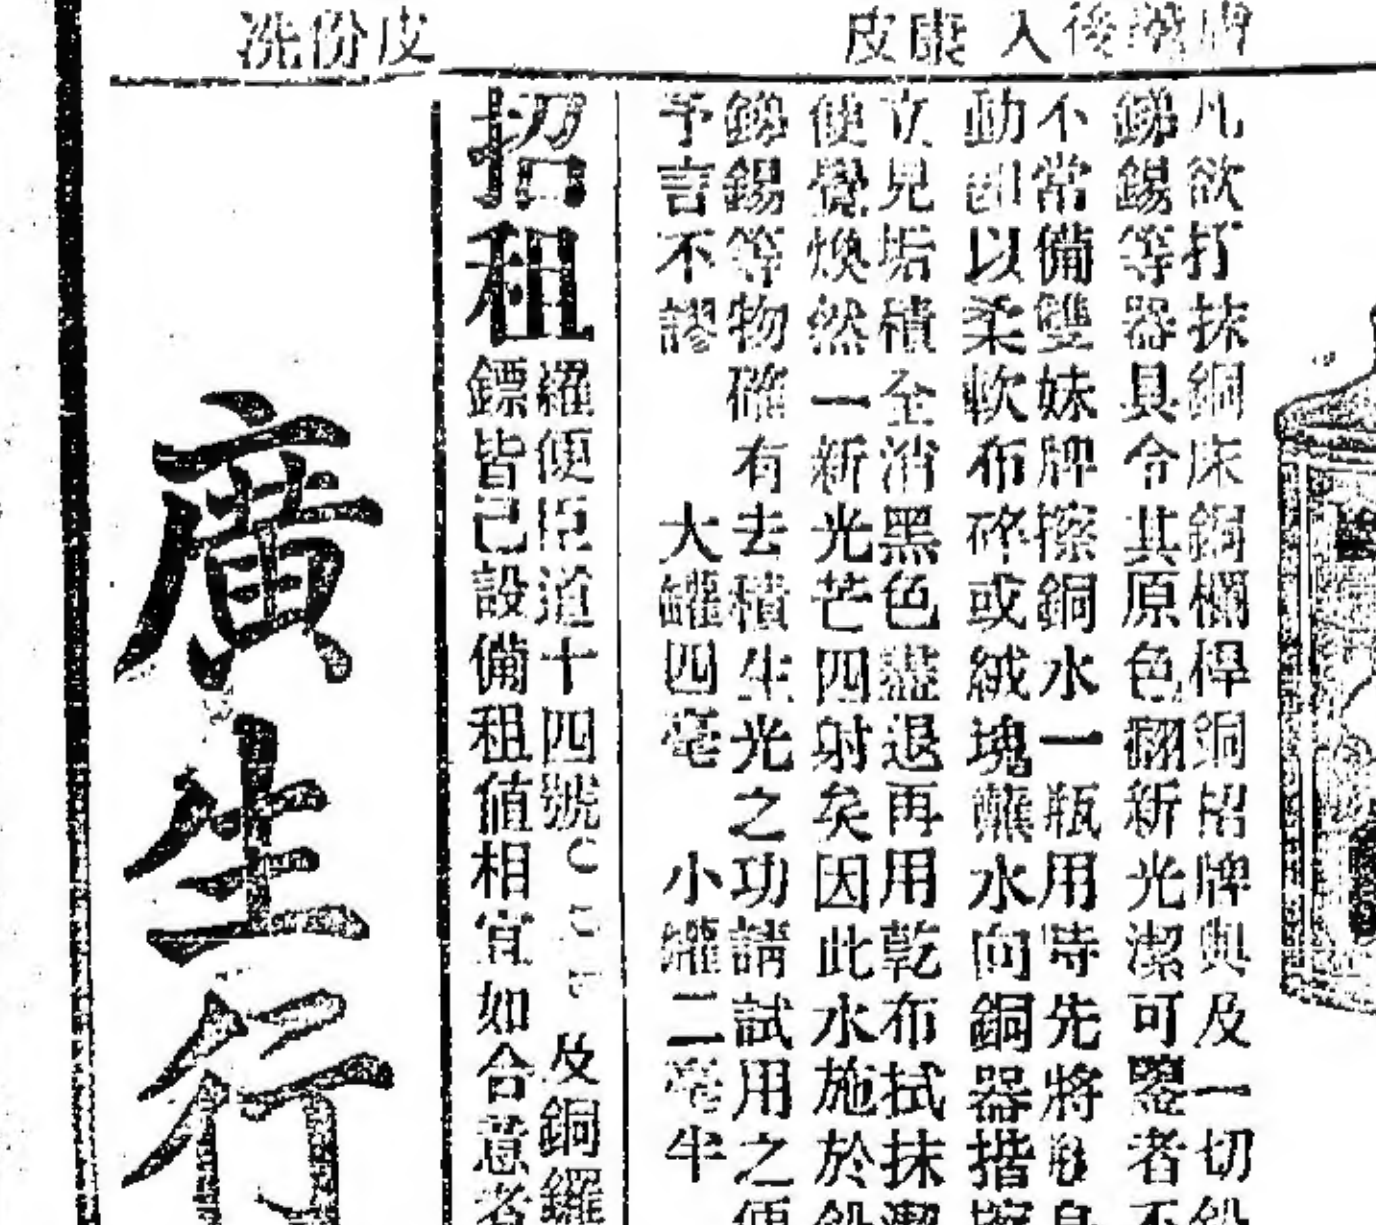 入康皮
皮份洗
凡欲打抹銅床銅欄桿銅招牌與及一切鉛
錫等器具令其原色翻新光潔可鑒者不
不常備雙妹牌擦銅水一瓶用時先將
動即以柔軟布碎或絨塊蘸水向銅器揩擦
立見垢積全消黑色盡退再用乾布拭抹潔
便覺煥然一新光芒四射矣因此水施於鉛
錫等物確有去積生光之功請試用之便
予言不謬 大罐四毫 小罐二毫半
招租
羅便臣道十四號 及銅鑼
鏢皆已設備租值相宜如合意者
廣生行